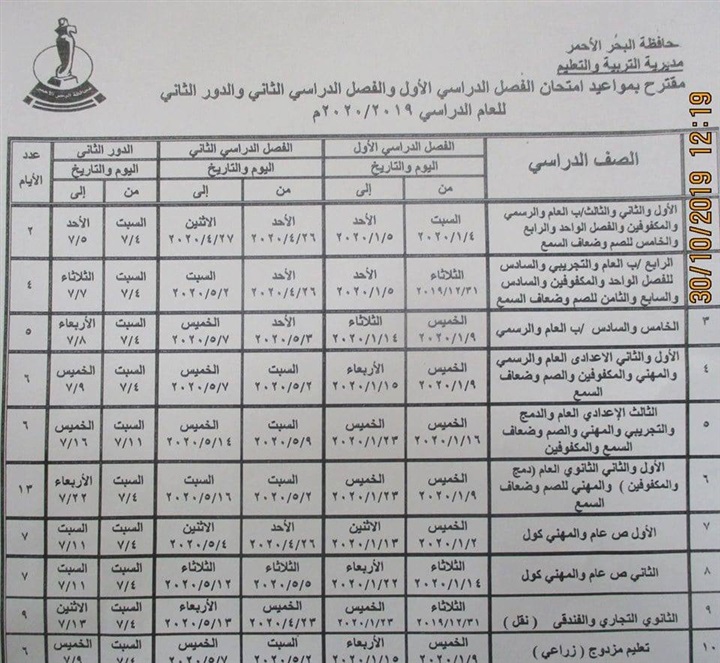 حافظة البحر الأحمر
مديرية التربية والتعليم
مقترح بمواعيد امتحان الفصل الدراسي الأول والفصل الدراسي الثاني والدور الثاني
للعام الدراسي ٢٠٢٠/٢٠١٩م
30/10/2019 12:19
الصف الدراسي | الفصل الدراسي الأول | الفصل الدراسي الثاني | الدور الثانى | عدد
اليوم والتاريخ | اليوم والتاريخ | اليوم والتاريخ | الأيام
من | إلى | من | إلى | من | إلى
الأول والثاني والثالث/ب العام والرسمي | السبت | الأحد | الأحد | الاثنين | السبت | الأحد | ٢
والمكفوفين والفصل الواحد والرابع | ٢٠٢٠/١/٤ | ٢٠٢٠/١/٥ | ٢٠٢٠/٤/٢٦ | ٢٠٢٠/٤/٢٧ | ٧/٤ | ٧/٥
والخامس للصم وضعاف السمع
الرابع /ب العام والتجريبي والسادس | الثلاثاء | الأحد | الأحد | السبت | السبت | الثلاثاء | ٤
للفصل الواحد والمكفوفين والسادس | ٢٠١٩/١٢/٣١ | ٢٠٢٠/١/٥ | ٢٠٢٠/٤/٢٦ | ٢٠٢٠/٥/٢ | ٧/٤ | ٧/٧
والسابع والثامن للصم وضعاف السمع
٣ | الخامس والسادس /ب العام والرسمي | الخميس | الثلاثاء | الأحد | الخميس | السبت | الأربعاء | ٥
٢٠٢٠/١/٩ | ٢٠٢٠/١/١٤ | ٢٠٢٠/٥/٣ | ٢٠٢٠/٥/٧ | ٧/٤ | ٧/٨
٤ | الأول والثاني الاعدادى العام والرسمي | الخميس | الأربعاء | السبت | الخميس | السبت | الخميس | ٦
والمهني والمكفوفين والصم وضعاف | ٢٠٢٠/١/٩ | ٢٠٢٠/١/١٥ | ٢٠٢٠/٥/٢ | ٢٠٢٠/٥/٧ | ٧/٤ | ٧/٩
السمع
٥ | الثالث الإعدادي العام والدمج | الخميس | الخميس | السبت | الخميس | السبت | الخميس | ٦
والتجريبي والمهني والصم وضعاف | ٢٠٢٠/١/١٦ | ٢٠٢٠/١/٢٣ | ٢٠٢٠/٥/٩ | ٢٠٢٠/٥/١٤ | ٧/١١ | ٧/١٦
السمع والمكفوفين
٦ | الأول والثاني الثانوي العام (دمج | الخميس | الخميس | السبت | السبت | السبت | الأربعاء | ١٣
والمكفوفين ) والمهني للصم وضعاف | ٢٠٢٠/١/٩ | ٢٠٢٠/١/٢٣ | ٢٠٢٠/٥/٢ | ٢٠٢٠/٥/١٦ | ٧/٤ | ٧/٢٢
السمع
٧ | الأول ص عام والمهني كول | الخميس | الاثنين | الأحد | الاثنين | السبت | السبت | ٧
٢٠٢٠/١/٢ | ٢٠٢٠/١/١٣ | ٢٠٢٠/٤/٢٦ | ٢٠٢٠/٥/٤ | ٧/٤ | ٧/١١
٨ | الثاني ص عام والمهني كول | الثلاثاء | الأربعاء | الثلاثاء | الثلاثاء | السبت | السبت | ٧
٢٠٢٠/١/١٤ | ٢٠٢٠/١/٢٢ | ٢٠٢٠/٥/٥ | ٢٠٢٠/٥/١٢ | ٧/٤ | ٧/١١
٩ | الثانوي التجاري والفندقى ( نقل ) | الثلاثاء | الخميس | الخميس | الأربعاء | السبت | الاثنين | ٩
٢٠١٩/١٢/٣١ | ٢٠٢٠/١/٢٣ | ٢٠٢٠/٤/٢٣ | ٢٠٢٠/٥/١٣ | ٧/٤ | ٧/١٣
١٠ | تعليم مزدوج ( زراعي ) | الخميس | الأربعاء | السبت | الخميس | السبت | الخميس | ٦
٢٠٢٠/١/٩ | ٢٠٢٠/١/١٥ | ٢٠٢٠/٥/٢ | ٢٠٢٠/٥/٧ | ٧/٤ | ٧/٩